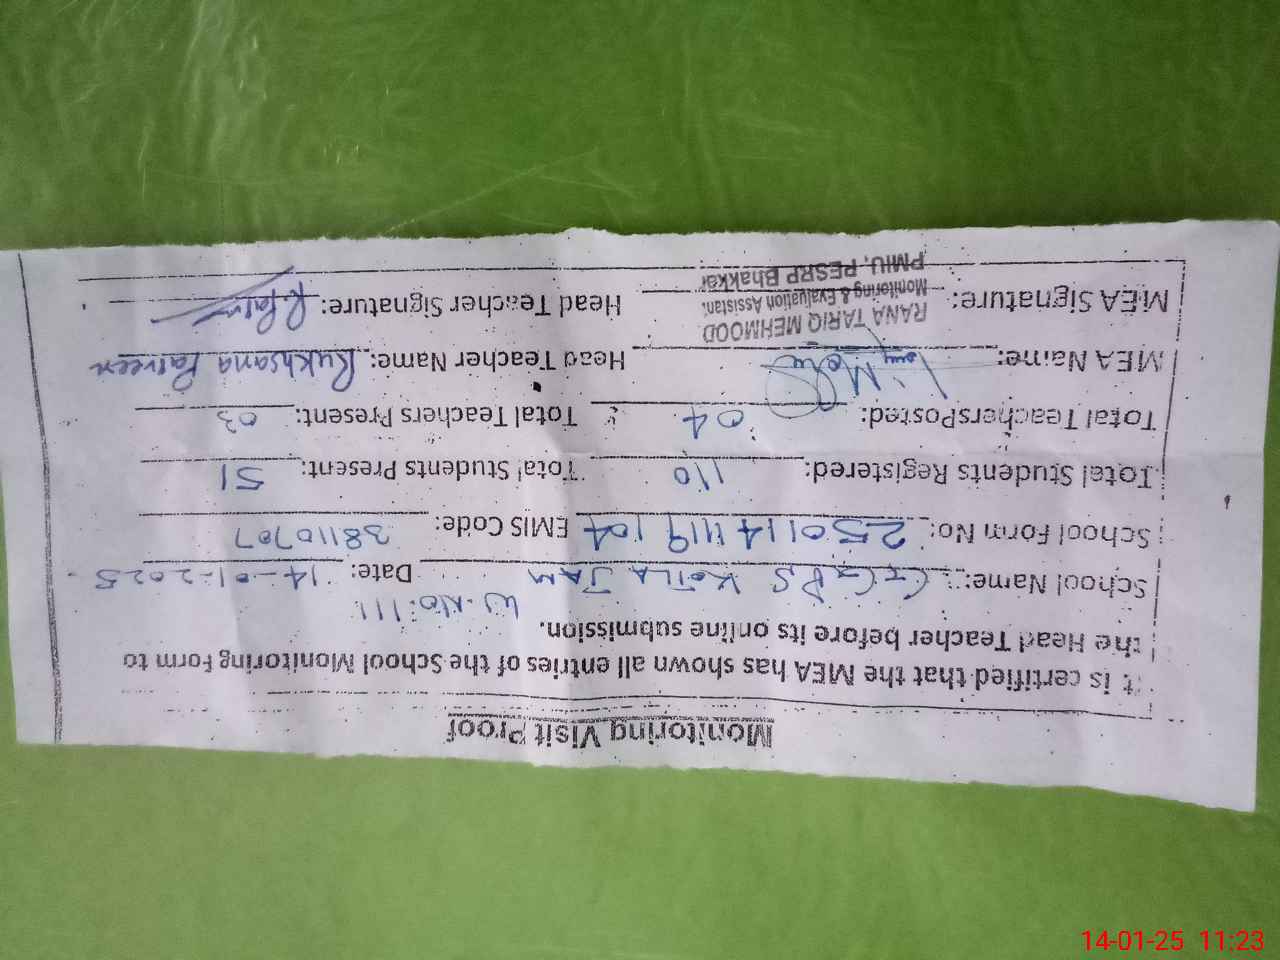 Monitoring Visit Proof
It is certified that the MEA has shown all entries of the School Monitoring Form to
the Head Teacher before its online submission.
W.No:111
School Name: GGPS KOTLA JAM Date: 14-01-2025
School Form No: 250114 1119 104 EMIS Code: 38110707
Total Students Registered: 110 Total Students Present: 51
Total Teachers Posted: 04 Total Teachers Present: 03
MEA Name: Head Teacher Name: Rukhsana Parveen
MEA Signature: Head Teacher Signature:
RANA TARIQ MEHMOOD
Monitoring & Evaluation Assistant
PMIU, PESRP Bhakkar
14-01-25 11:23